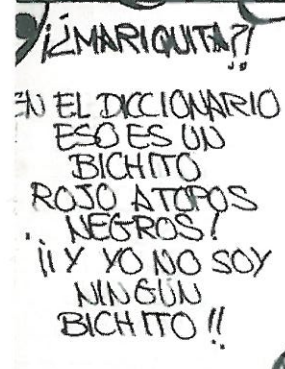 ¡¿MARIQUITA?!
EN EL DICCIONARIO
ESO ES UN
BICHITO
ROJO A TOPOS
NEGROS!
¡¡Y YO NO SOY
NINGÚN
BICHITO!!